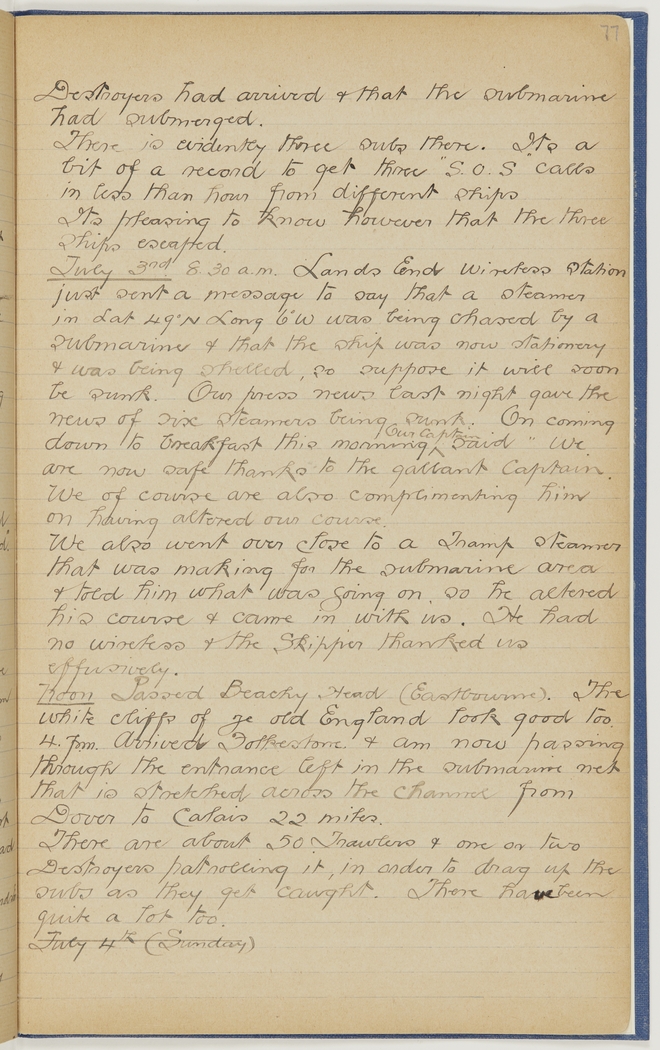 77
Destroyers had arrived & that the submarine
had submerged.
There is evidently three subs there. Its a
bit of a record to get three "S.O.S" calls
in less than hour from different ships
Its pleasing to know however that the three
ships escaped.
July 3rd 8.30 a.m. Lands End Wireless Station
just sent a message to say that a steamer
in Lat 49°N Long 6°W was being chased by a
submarine & that the ship was now stationery
& was being shelled, so suppose it will soon
be sunk. Our press news last night gave the
news of six steamers being sunk. On coming
down to breakfast this morning Our Captain said " We
are now safe thanks to the gallant Captain.
We of course are also complimenting him
on having altered our course.
We also went over close to a Tramp steamer
that was making for the submarine area
& told him what was going on, so he altered
his course & came in with us. He had
no wireless & the Skipper thanked us
effusively.
Noon Passed Beachy Head (Eastbourne). The
white cliffs of ye old England look good too.
4.pm. Arrived Folkestone. & am now passing
through the entrance left in the submarine net
that is stretched across the channel from
Dover to Calais 22 miles.
There are about 50 Trawlers & one or two
Destroyers patrolling it, in order to drag up the
subs as they get caught. There have been
quite a lot too.
July 4th (Sunday)